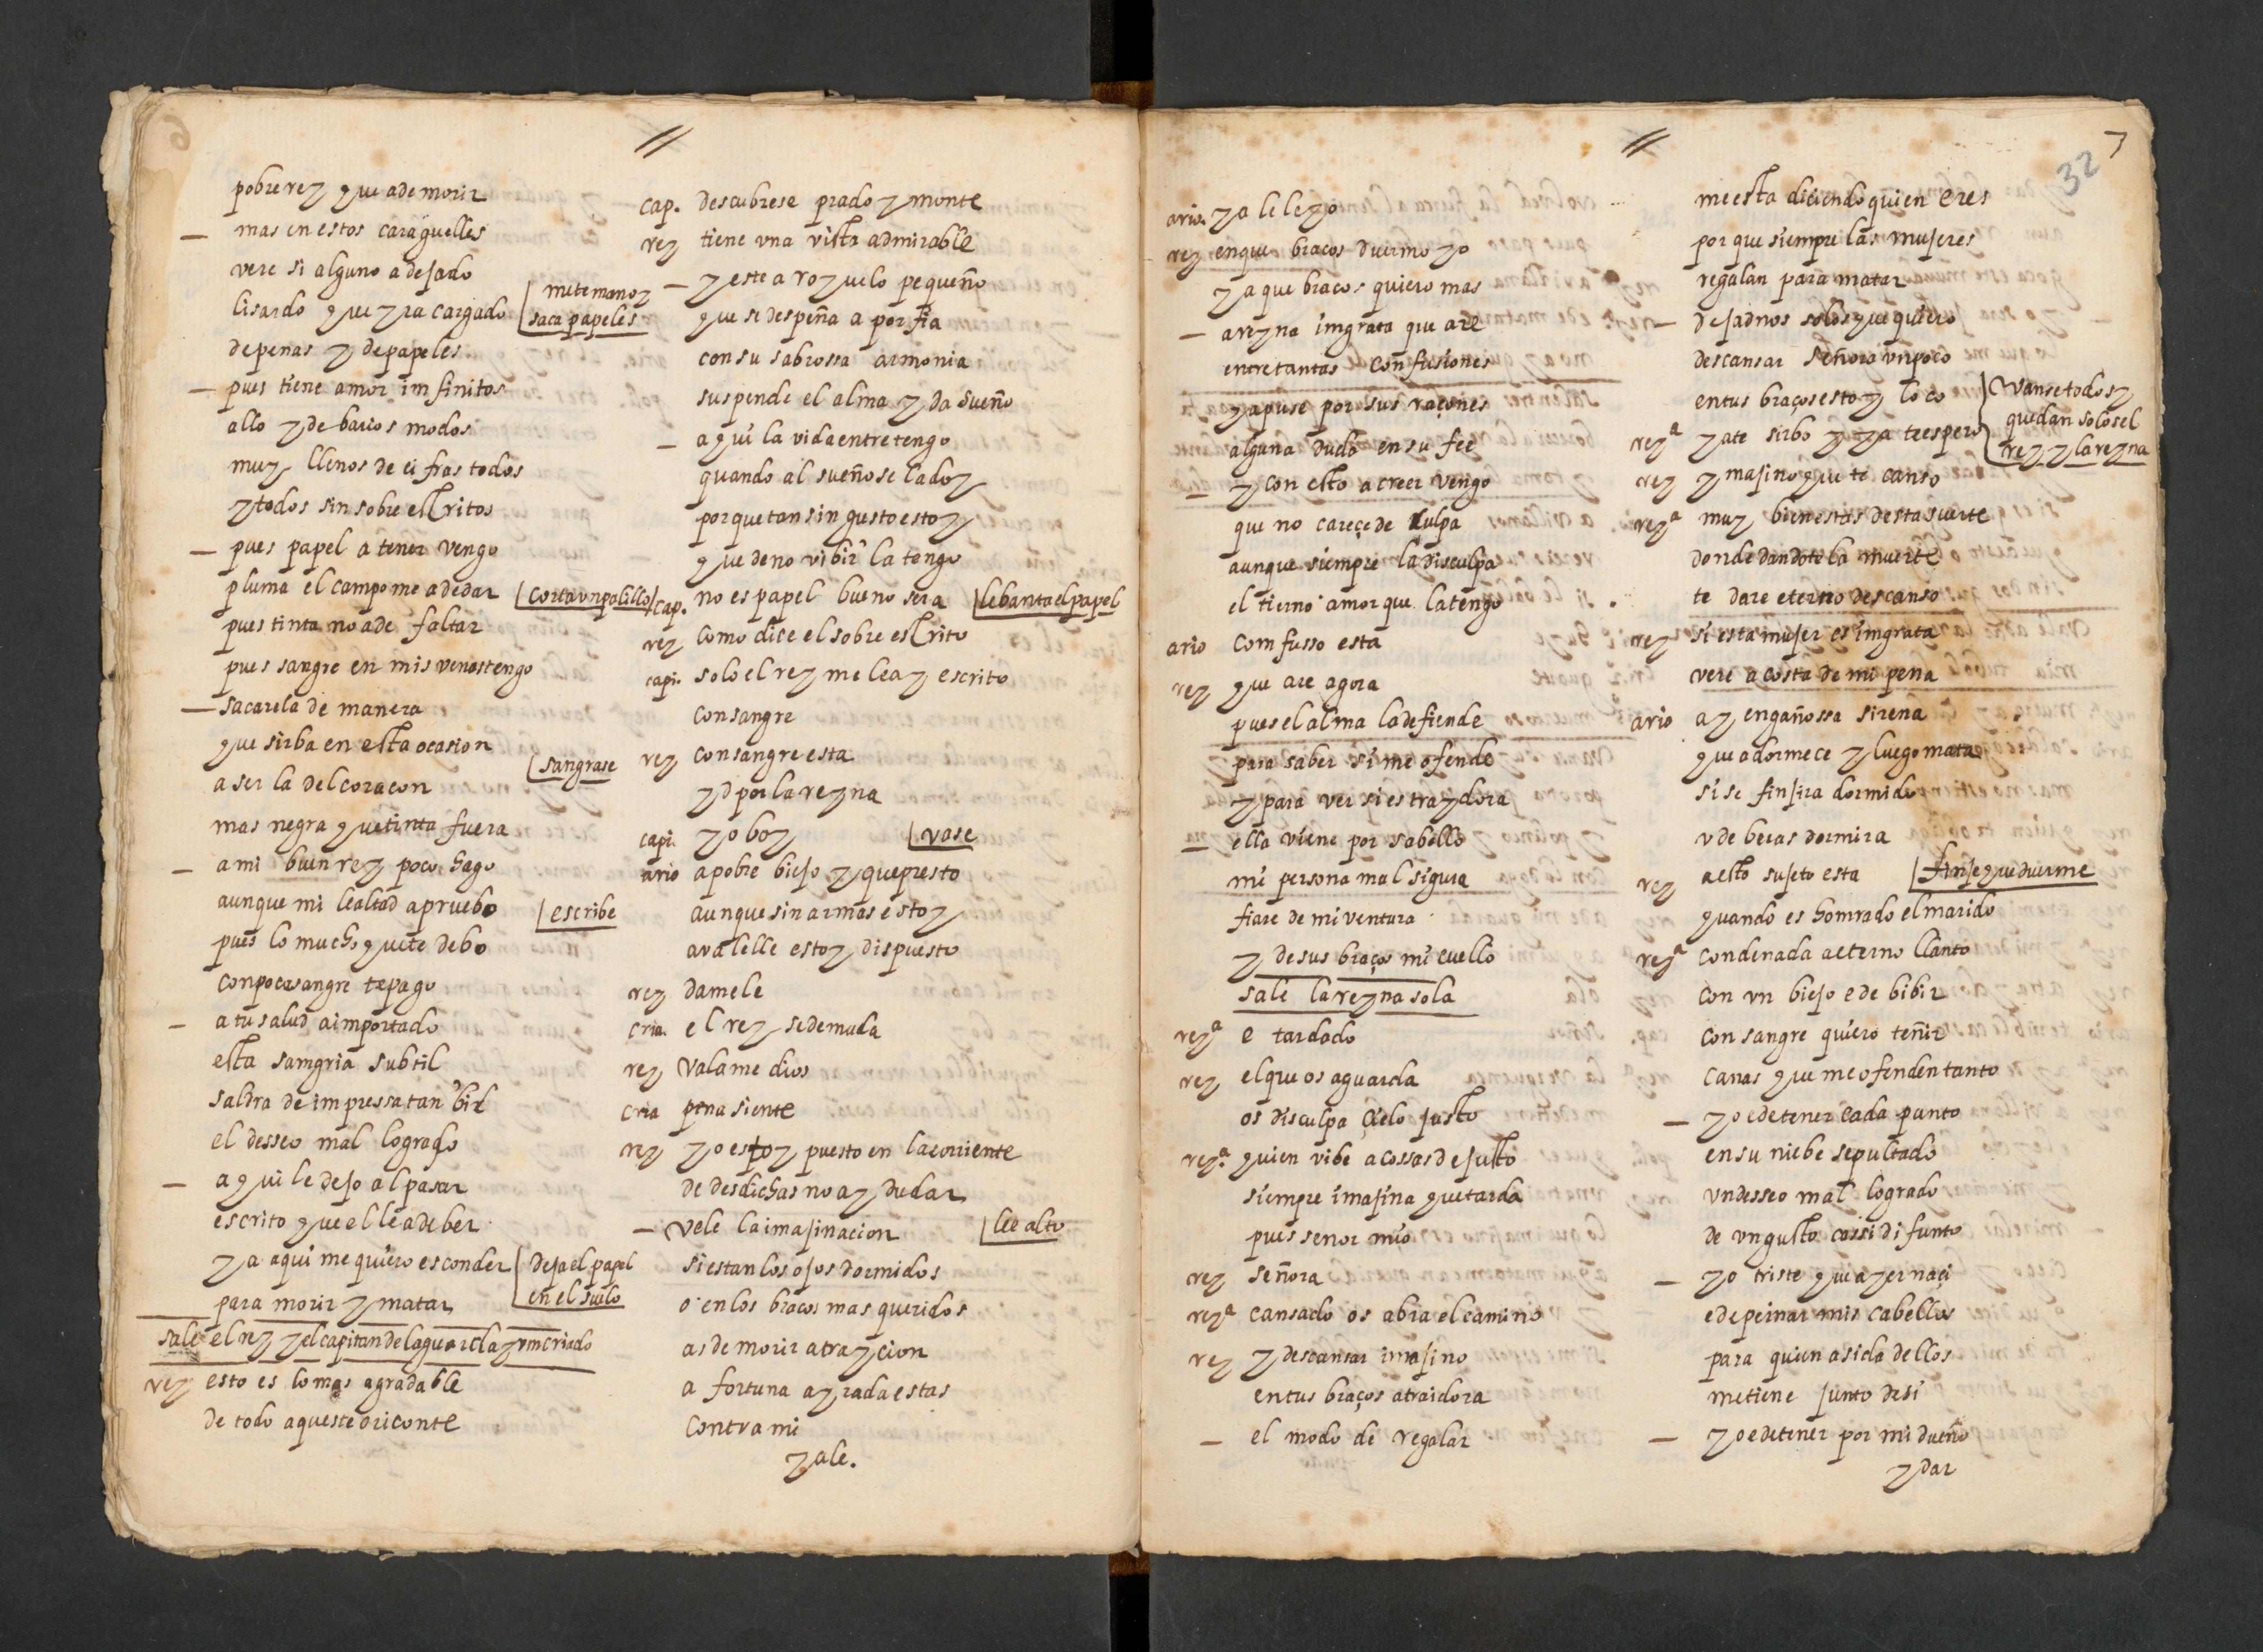 //
pobre rey que a de morir
— mas en estos caraguelles
vere si alguno a dejado
lisardo que yra cargado
mete mano y
saca papeles
de penas y de papeles
— pues tiene amor imfinitos
allo y de barios modos
muy llenos de cifras todos
y todos sin sobre escritos
— pues papel a tener vengo
pluma el campo me a de dar
corta vn palillo
pues tinta no a de faltar
pues sangre en mis venas tengo
— sacarela de manera
que sirba en esta ocasion
sangrase
a ser la del coraçon
mas negra que tinta fuera
— a mi buen rey poco hago
aunque mi lealtad apruebo
escribe
pues lo mucho que te debo
con poca sangre te pago
— a tu salud a importado
esta samgria subtil
saldra de impressa tan bil
el desseo mal logrado
— aqui le dejo al pasar
escrito que el le a de ber
ya aqui me quiero esconder
deja el papel
en el suelo
para morir y matar
sale el rey y el capitan de la guarda y vm criado
rey esto es lo mas agradable
de todo aqueste oriconte
cap. descubrese prado y monte
rey tiene vna vista admirable
— y este aroyuelo pequeño
que se despeña a porfia
con su sabrossa armonia
suspende el alma y da sueño
— aqui la vida entretengo
quando al sueño se la doy
porque tan sin gusto estoy
que de no vibir la tengo
cap. no es papel bueno sera
lebanta el papel
rey como dice el sobre escrito
capi. solo el rey me lea y escrito
con sangre
rey con sangre esta
yd por la reyna
capi. yo boy
vase
ario a pobre biejo y que presto
aunque sin armas estoy
a valelle estoy dispuesto
rey damele
cria. el rey se demuda
rey valame dios
cria pena siente
rey yo estoy puesto en la coriente
de desdichas no ay dudar
— vele la imajinacion
lee alto
si estan los ojos dormidos
o en los braços mas queridos
as de morir a traycion
a fortuna ayrada estas
contra mi
ya le.
//
7
32
ario. ya le leyo
rey en que braços duermo yo
ya que braços quiero mas
— a reyna imgrata que are
entre tantas confusiones
ya puse por sus raçones
alguna duda en su fee
— y con esto a creer vengo
que no careçe de culpa
aunque siempre la disculpa
el tierno amor que la tengo
ario comfusso esta
rey que are agora
pues el alma la defiende
para saber si me ofende
y para ver si es traydora
— ella viene por sabello
mi persona mal sigura
fiare de mi ventura
y de sus braços mi cuello
sale la reyna sola
reyª e tardado
rey el que os aguarda
os disculpa çielo justo
reyª. quien vibe a cossas de justo
siempre imajina que tarda
pues senor mio
rey señora
reyª cansado os abra el camino
rey y descansar imajino
en tus braços a traidora
— el modo de regalar
me esta diciendo quien eres
porque siempre las mujeres
regalan para matar
— dejadnos solos que quiero
descansar señora vn poco
en tus braços estoy loco
vanse todos y
quedan solos el
rey y la reyna
reyª ya te sirbo y ya te espero
rey ymajino que te canso
reyª muy bien estas desta suerte
donde dandote la muerte
te dare eterno descanso
rey si esta mujer es imgrata
vere a costa de mi pena
ario ay engañossa sirena
que adormece y luego mata
si se finjira dormido
v de beras dormira
rey a esto sujeto esta
finje que duerme
quando es homrado el marido
reyª condenada a eterno llanto
con vn biejo e de bibir
con sangre quiero teñir
canas que me ofenden tanto
— yo e de tener cada punto
en su niebe sepultado
vn desseo mal logrado
de vn gusto cassi difunto
— yo triste que ayer naçi
e de peinar mis cabellos
para quien asida dellos
me tiene junto de si
— yo e de tener por mi dueño
y dar